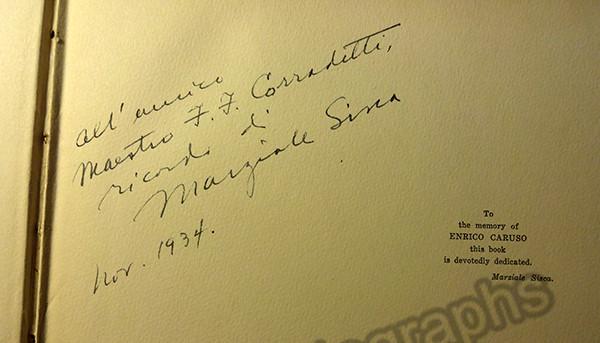 all'amico
Maestro F. F. Corradetti,
ricordo di
Marziale Sisca
Nov. 1934.
To
the memory of
ENRICO CARUSO
this book
is devotedly dedicated.
Marziale Sisca.